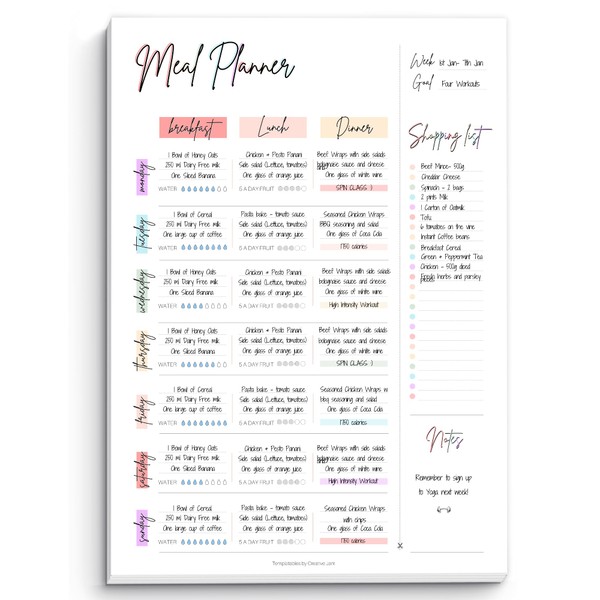 Meal Planner
Week 1st Jan- 7th Jan
Goal Four Workouts
breakfast Lunch Dinner
monday
1 Bowl of Honey Oats
250 ml Dairy Free milk
One Sliced Banana
WATER
Chicken + Pesto Panani
Side salad (Lettuce, tomatoes)
One glass of orange juice
5 A DAY FRUIT
Beef Wraps with side salads
bolognaise sauce and cheese
One glass of white wine
SPIN CLASS :)
tuesday
1 Bowl of Cereal
250 ml Dairy Free milk
One large cup of coffee
WATER
Pasta bake - tomato sauce
Side salad (Lettuce, tomatoes)
One glass of orange juice
5 A DAY FRUIT
Seasoned Chicken Wraps
BBQ seasoning and salad
One glass of Coca Cola
1780 calories
wednesday
1 Bowl of Honey Oats
250 ml Dairy Free milk
One Sliced Banana
WATER
Chicken + Pesto Panani
Side salad (Lettuce, tomatoes)
One glass of orange juice
5 A DAY FRUIT
Beef Wraps with side salads
bolognaise sauce and cheese
One glass of white wine
High Intensity Workout
thursday
1 Bowl of Honey Oats
250 ml Dairy Free milk
One Sliced Banana
WATER
Chicken + Pesto Panani
Side salad (Lettuce, tomatoes)
One glass of orange juice
5 A DAY FRUIT
Beef Wraps with side salads
bolognaise sauce and cheese
One glass of white wine
SPIN CLASS :)
friday
1 Bowl of Cereal
250 ml Dairy Free milk
One large cup of coffee
WATER
Pasta bake - tomato sauce
Side salad (Lettuce, tomatoes)
One glass of orange juice
5 A DAY FRUIT
Seasoned Chicken Wraps w
bbq seasoning and salad
One glass of Coca Cola
1780 calories
saturday
1 Bowl of Honey Oats
250 ml Dairy Free milk
One Sliced Banana
WATER
Chicken + Pesto Panani
Side salad (Lettuce, tomatoes)
One glass of orange juice
5 A DAY FRUIT
Beef Wraps with side salads
bolognaise sauce and cheese
One glass of white wine
High Intensity Workout
sunday
1 Bowl of Cereal
250 ml Dairy Free milk
One large cup of coffee
WATER
Pasta bake - tomato sauce
Side salad (Lettuce, tomatoes)
One glass of orange juice
5 A DAY FRUIT
Seasoned Chicken Wraps
with chips
One glass of Coca Cola
1780 calories
Shopping list
Beef Mince- 500g
Cheddar Cheese
Spinach - 2 bags
2 pints Milk
1 Carton of Oatmilk
Tofu
6 tomatoes on the vine
Instant Coffee beans
Breakfast Cereal
Green + Peppermint Tea
Chicken - 500g diced
Fresh herbs and parsley
Notes
Remember to sign up
to Yoga next week!
x
Templatables by Creative Jam